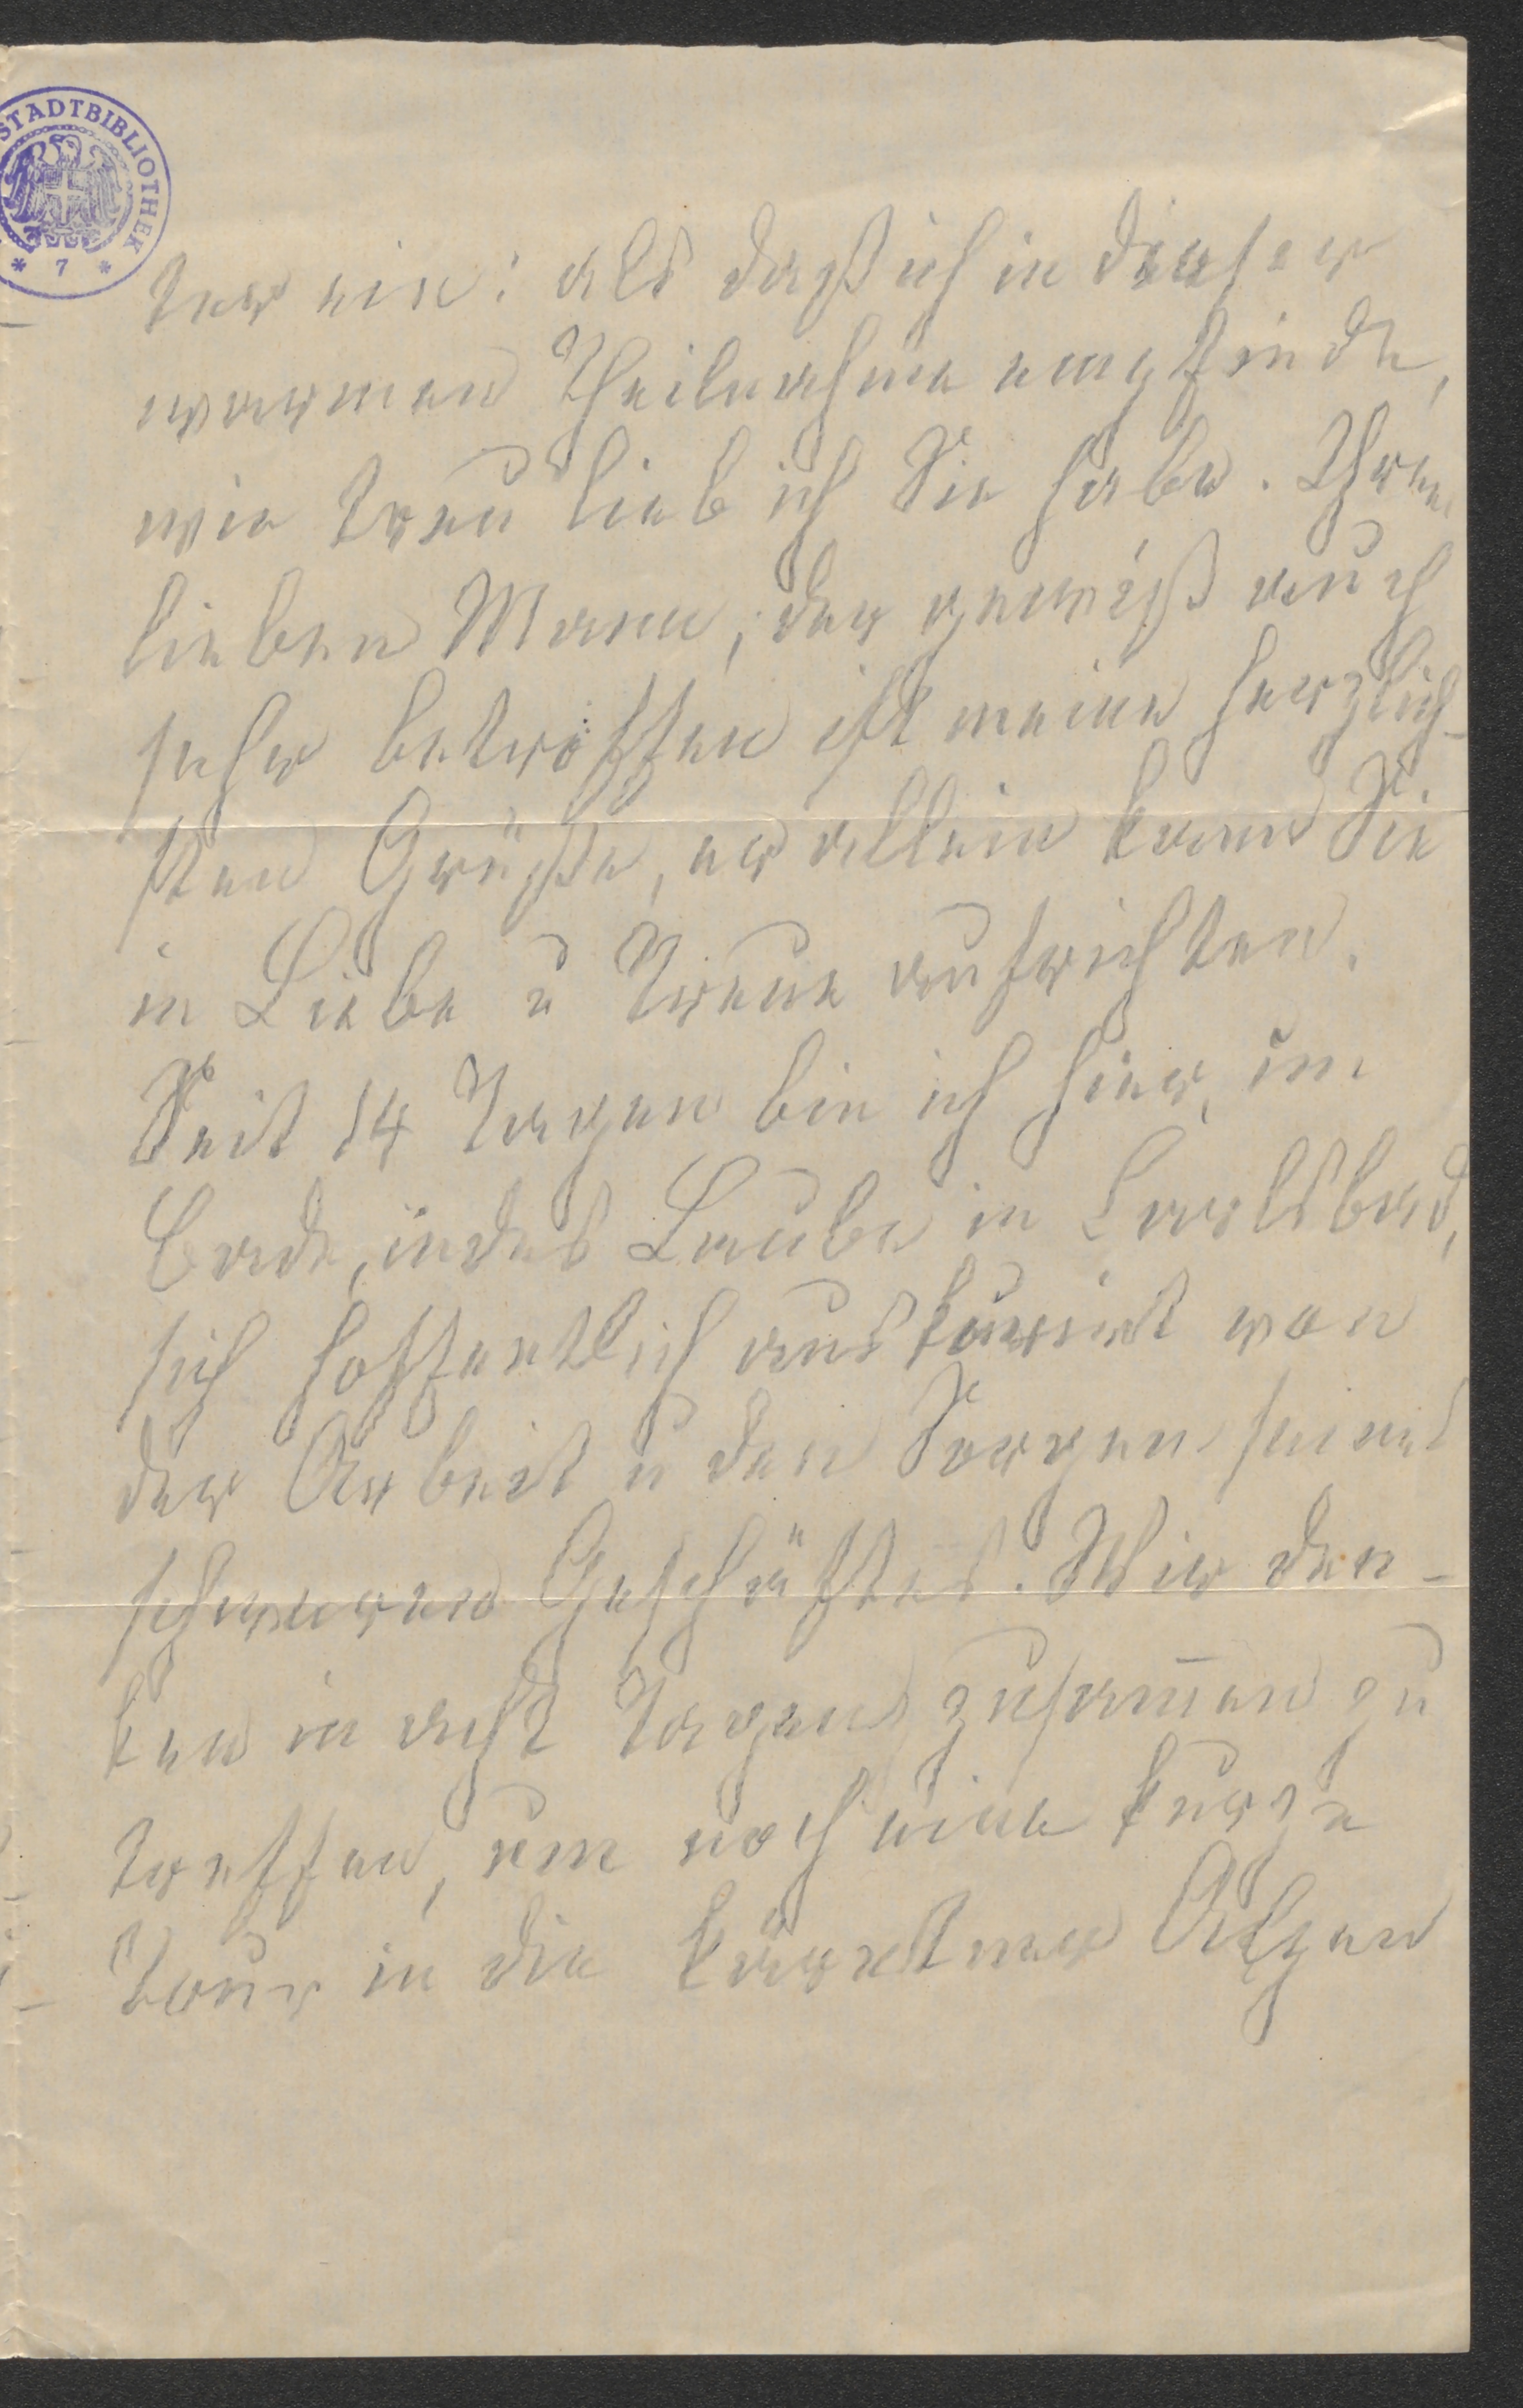 STADTBIBLIOTHEK
* 7 *
ter ein: als daß ich in dieser
warmen Theilnahme empfinde,
wie treu lieb ich Sie habe. Ihren
lieben Mann, der gewiß auch
sehr betroffen ist meine herzlich-
sten Grüße, er allein kann Sie
in Liebe u Treue aufrichten.
Seit 14 Tagen bin ich hier, im
Bade, indes Laube in Carlsbad,
sich hoffentlich auskurirt von
der Arbeit u den Sorgen seines
schweren Geschäftes. Wir den-
ken in acht Tagen zusam̅en zu
treffen, um noch eine kurze
Tour in die Kärntner Alpen